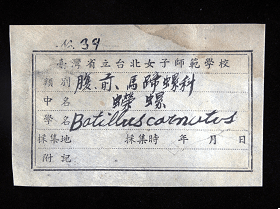 No. 39
臺灣省立台北女子師範學校
類別 腹.前.馬蹄螺科
中名 蠑螺
學名 Batillus cornutus
採集地 採集時 年 月 日
附記